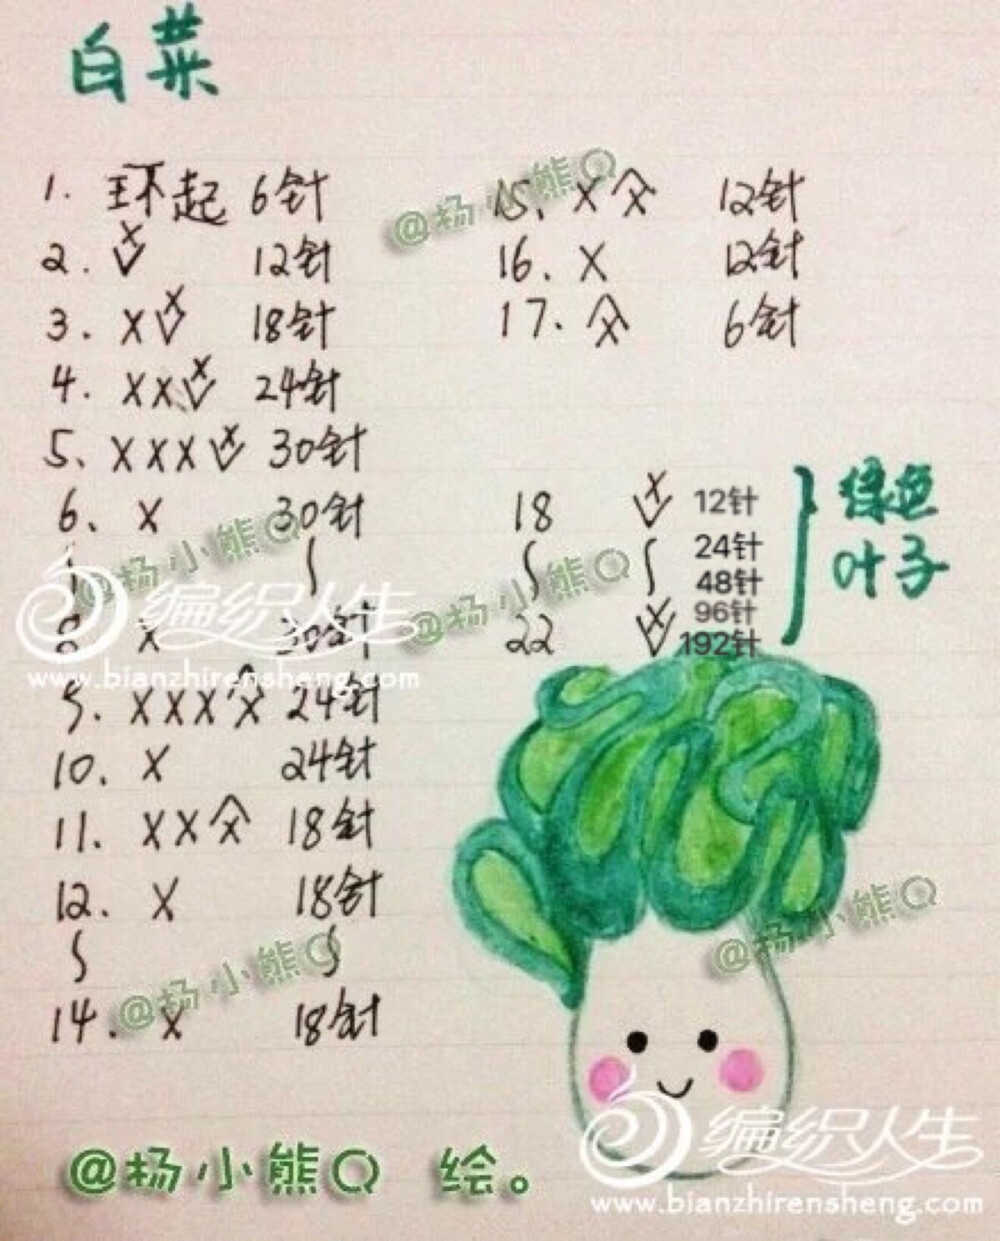 白菜
1. 环起 6针
2. V 12针
3. XV 18针
4. XXV 24针
5、XXXV 30针
6、X 30针
∫ ∫
8、X 30针
9. XXX A 24针
10、X 24针
11. XX A 18针
12. X 18针
∫ ∫
14. X 18针
15、X A 12针
16、X 12针
17. A 6针
18 V 12针
∫ ∫ 24针
48针
22 V 96针
192针
绿色
叶子
@杨小熊Q
@杨小熊Q
@杨小熊Q
@杨小熊Q
@杨小熊Q
编织人生
www.bianzhirensheng.com
@杨小熊Q 绘。
编织人生
www.bianzhirensheng.com